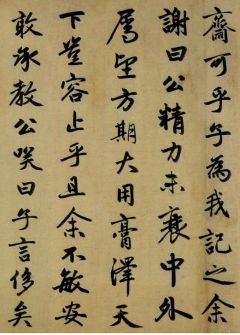 齋可乎子為我記之余
謝曰公精力未衰中外
屬望方期大用膏澤天
下豈容止乎且余不敏安
敢承教公笑曰子言侈矣